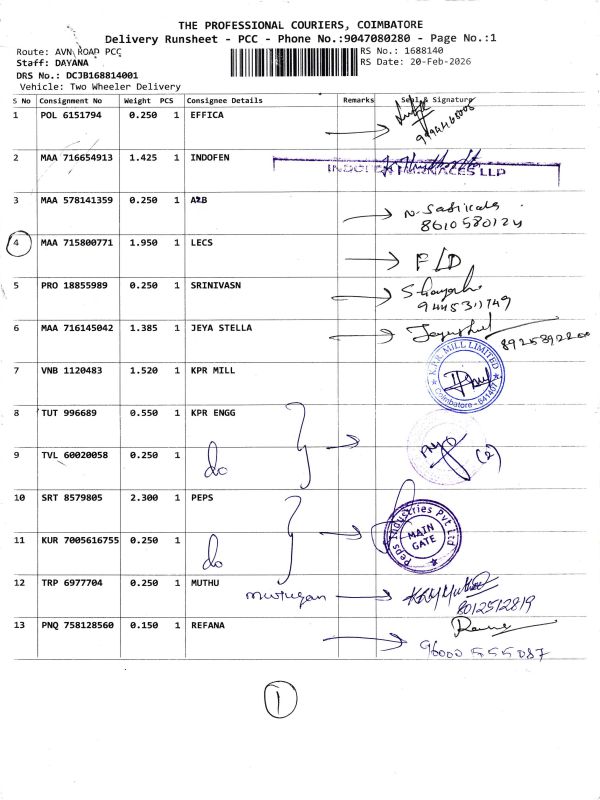 THE PROFESSIONAL COURIERS, COIMBATORE
Delivery Runsheet - PCC - Phone No.:9047080280 - Page No.:1
Route: AVN ROAD PCC
RS No.: 1688140
Staff: DAYANA
RS Date: 20-Feb-2026
DRS No.: DCJB168814001
Vehicle: Two Wheeler Delivery
S No Consignment No Weight PCS Consignee Details Remarks Seal & Signature
1 POL 6151794 0.250 1 EFFICA
2 MAA 716654913 1.425 1 INDOFEN
3 MAA 578141359 0.250 1 A2B
N. Sasikala
8610580124
4 MAA 715800771 1.950 1 LECS F/D
5 PRO 18855989 0.250 1 SRINIVASN
9445311749
6 MAA 716145042 1.385 1 JEYA STELLA
7 VNB 1120483 1.520 1 KPR MILL
K.P.R. MILL LIMITED
Coimbatore - 641407
8 TUT 996689 0.550 1 KPR ENGG
9 TVL 60020058 0.250 1 do (2)
10 SRT 8579805 2.300 1 PEPS
Peps Industries Pvt Ltd
MAIN
GATE
11 KUR 7005616755 0.250 1 do
12 TRP 6977704 0.250 1 MUTHU
murugan
8012512819
13 PNQ 758128560 0.150 1 REFANA
96000 555087
1